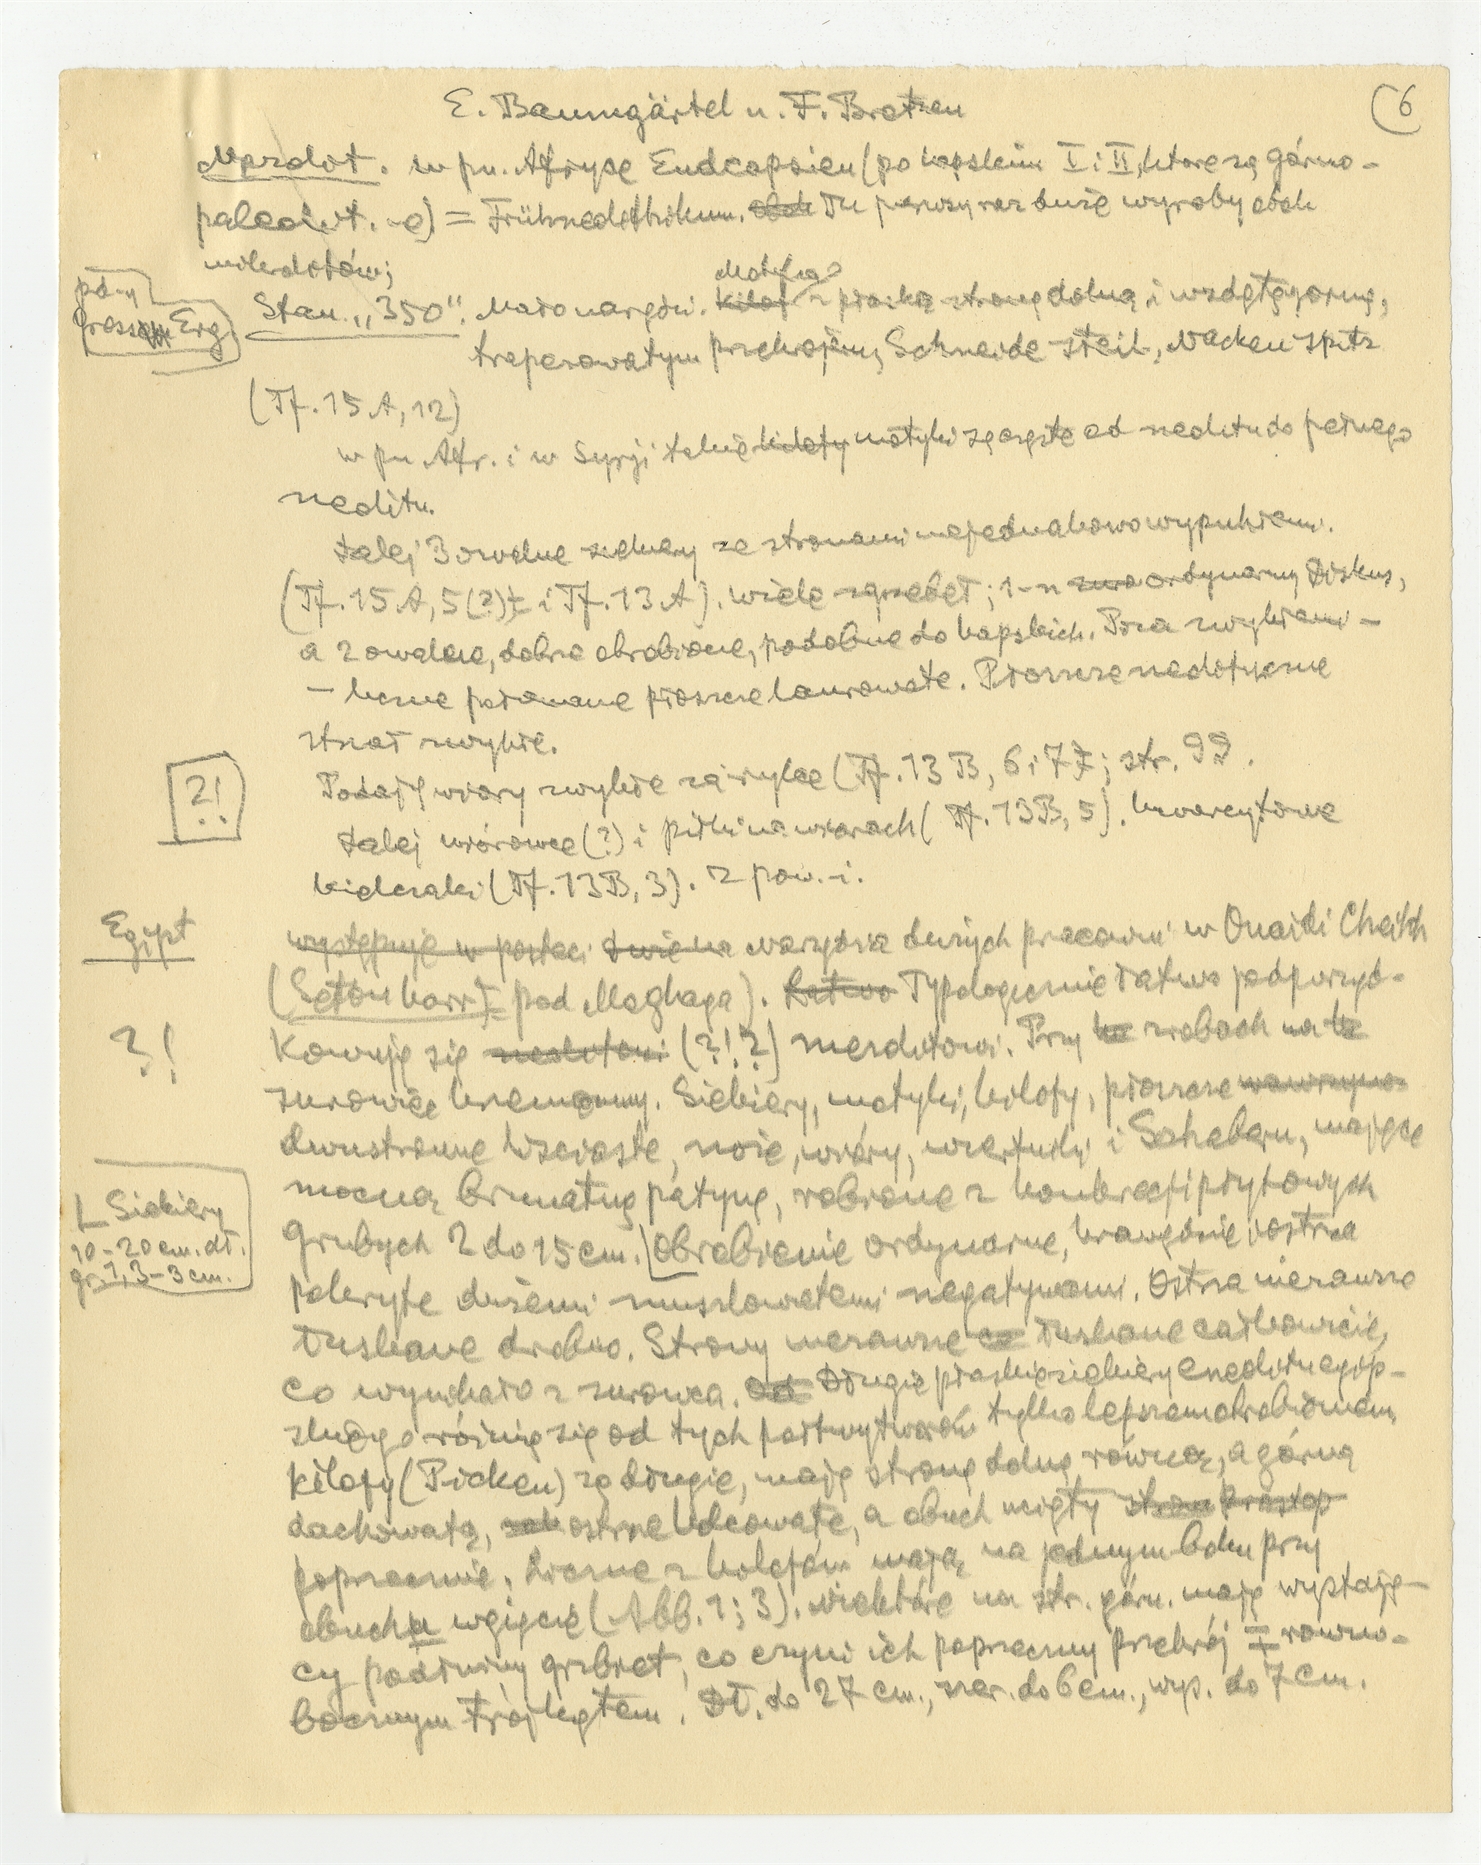 E. Baumgärtel u. F. Brotzen
(6
Mezolit. w pn. Afryce Endcapsien (po kapskim I i II, które są górno-
paleolit. -e) = Frühneolithikum. Tu pierwszy raz duże wyroby obok
mikrolitów;
pd-y
Gross Erg
Stan. „350". Mało narzędzi. Motyka z płaską stroną dolną i wzdętą górną,
trapezowatym przekrojem, Schneide steil, Nacken spitz
(Tf. 15 A, 12)
w pn. Afr. i w Syrji takie kilofy motyki są częste od neolitu do pełnego
neolitu.
Dalej 3 owalne siekiery ze stronami niejednakowo wypukłemi.
(Tf. 15 A, 5(?) i Tf. 13 A). Wiele zgrzebeł; 1-n ordynarny Diskus,
a 2 owalne, dobrze obrobione, podobne do kapskich. Poza zwykłemi -
- liczne połamane płoszcze laurowate. Płoszcze neolityczne
strzał zwykłe.
?!
Podaję wióry zwykłe za rylce (Tf. 13 B, 6 i 7); str. 99.
Dalej wiórowce (?) i piłki na wiórach (Tf. 13B, 5). Kwarcytowe
kieleraki (Tf. 13B, 3). z pow. i.
Egipt
występuje w postaci narzędzia dużych pracowni w Ouaidi Cheikh
(Setonkarr pod Maghaga). Łatwo Typologicznie łatwo podporząd-
?!
kowuje się neolitowi (?!?) mezolitowi. Przy żłobach na
surowiec krzemienny. Siekiery, motyki, kilofy, płoszcze wawrzyno
dwustronne liściaste, noże, wióry, wiertniki i Schabern, mające
mocną brunatną patynę, robione z konkrecji płytowych
L Siekiery
10-20 cm. dł.
gr. 1,3-3 cm.
grubych 2 do 15 cm. Obrobienie ordynarne, krawędzie i ostrza
pokryte dużemi muszlowatemi negatywami. Ostrza nierawsze
łuskane drobno. Strony nierawsze łuskane całkowicie,
co wynikało z surowca. Długie płaskie siekiery eneolitu egip-
skiego różnią się od tych półwytworów tylko lepszem obrobieniem,
Kilofy (Picken) są długie, mają stronę dolną równą, a górną
dachowatą, ostrze kolcowate, a obuch ucięty
poprzecznie. Liczne z kilofów mają na jednym boku przy
obuchu wgięcie (Abb. 1; 3). Niektóre na str. górn. mają wystają-
cy podłużny grzbiet, co czyni ich poprzeczny przekrój I równo-
bocznym trójkątem. Dł. do 27 cm., szer. do 6 cm., wys. do 7 cm.